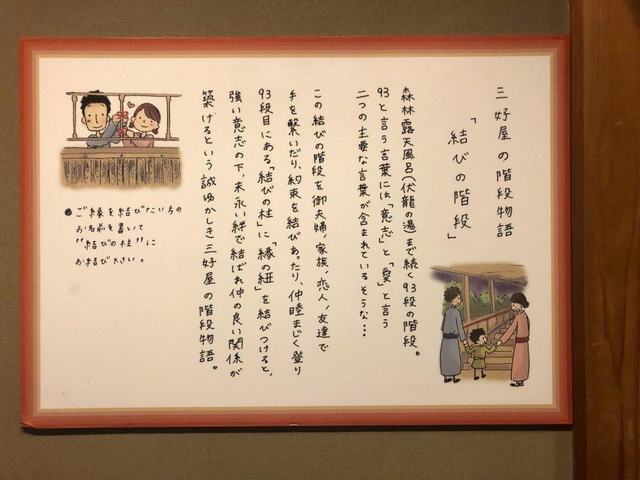 三好屋の階段物語
「結びの階段」
森林露天風呂(伏龍の湯)まで続く93段の階段。
93と言う言葉には、「意志」と「愛」と言う
二つの主要な言葉が含まれているそうな…
この結びの階段を御夫婦、家族、恋人、友達で
手を繋いだり、約束を結びあったり、仲睦まじく登り
93段目にある「結びの柱」に「縁の紐」を結びつけると、
強い意志の下、末永い絆で結ばれ仲の良い関係が
築けるという誠ゆかしき三好屋の階段物語。
●ご縁を結びたい方の
お名前を書いて
"結びの柱"に
お結び下さい。